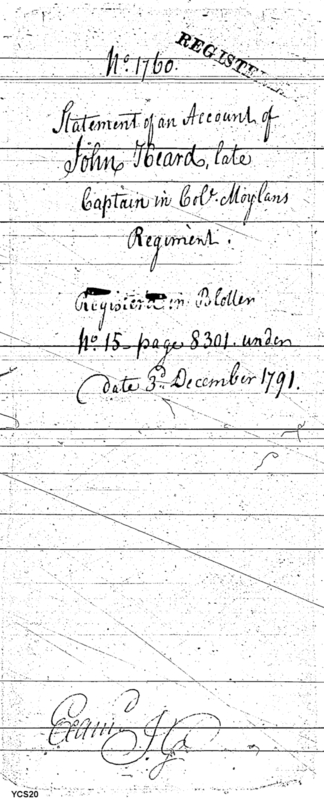 REGISTE
No. 1760.
Statement of an Account of
John Heard, late
Captain in Colo. Moylans
Regiment.
Registered in Blotter
No. 15 - page 8301. under
date 3d. December 1791.
Exam'd J. G.
YCS20